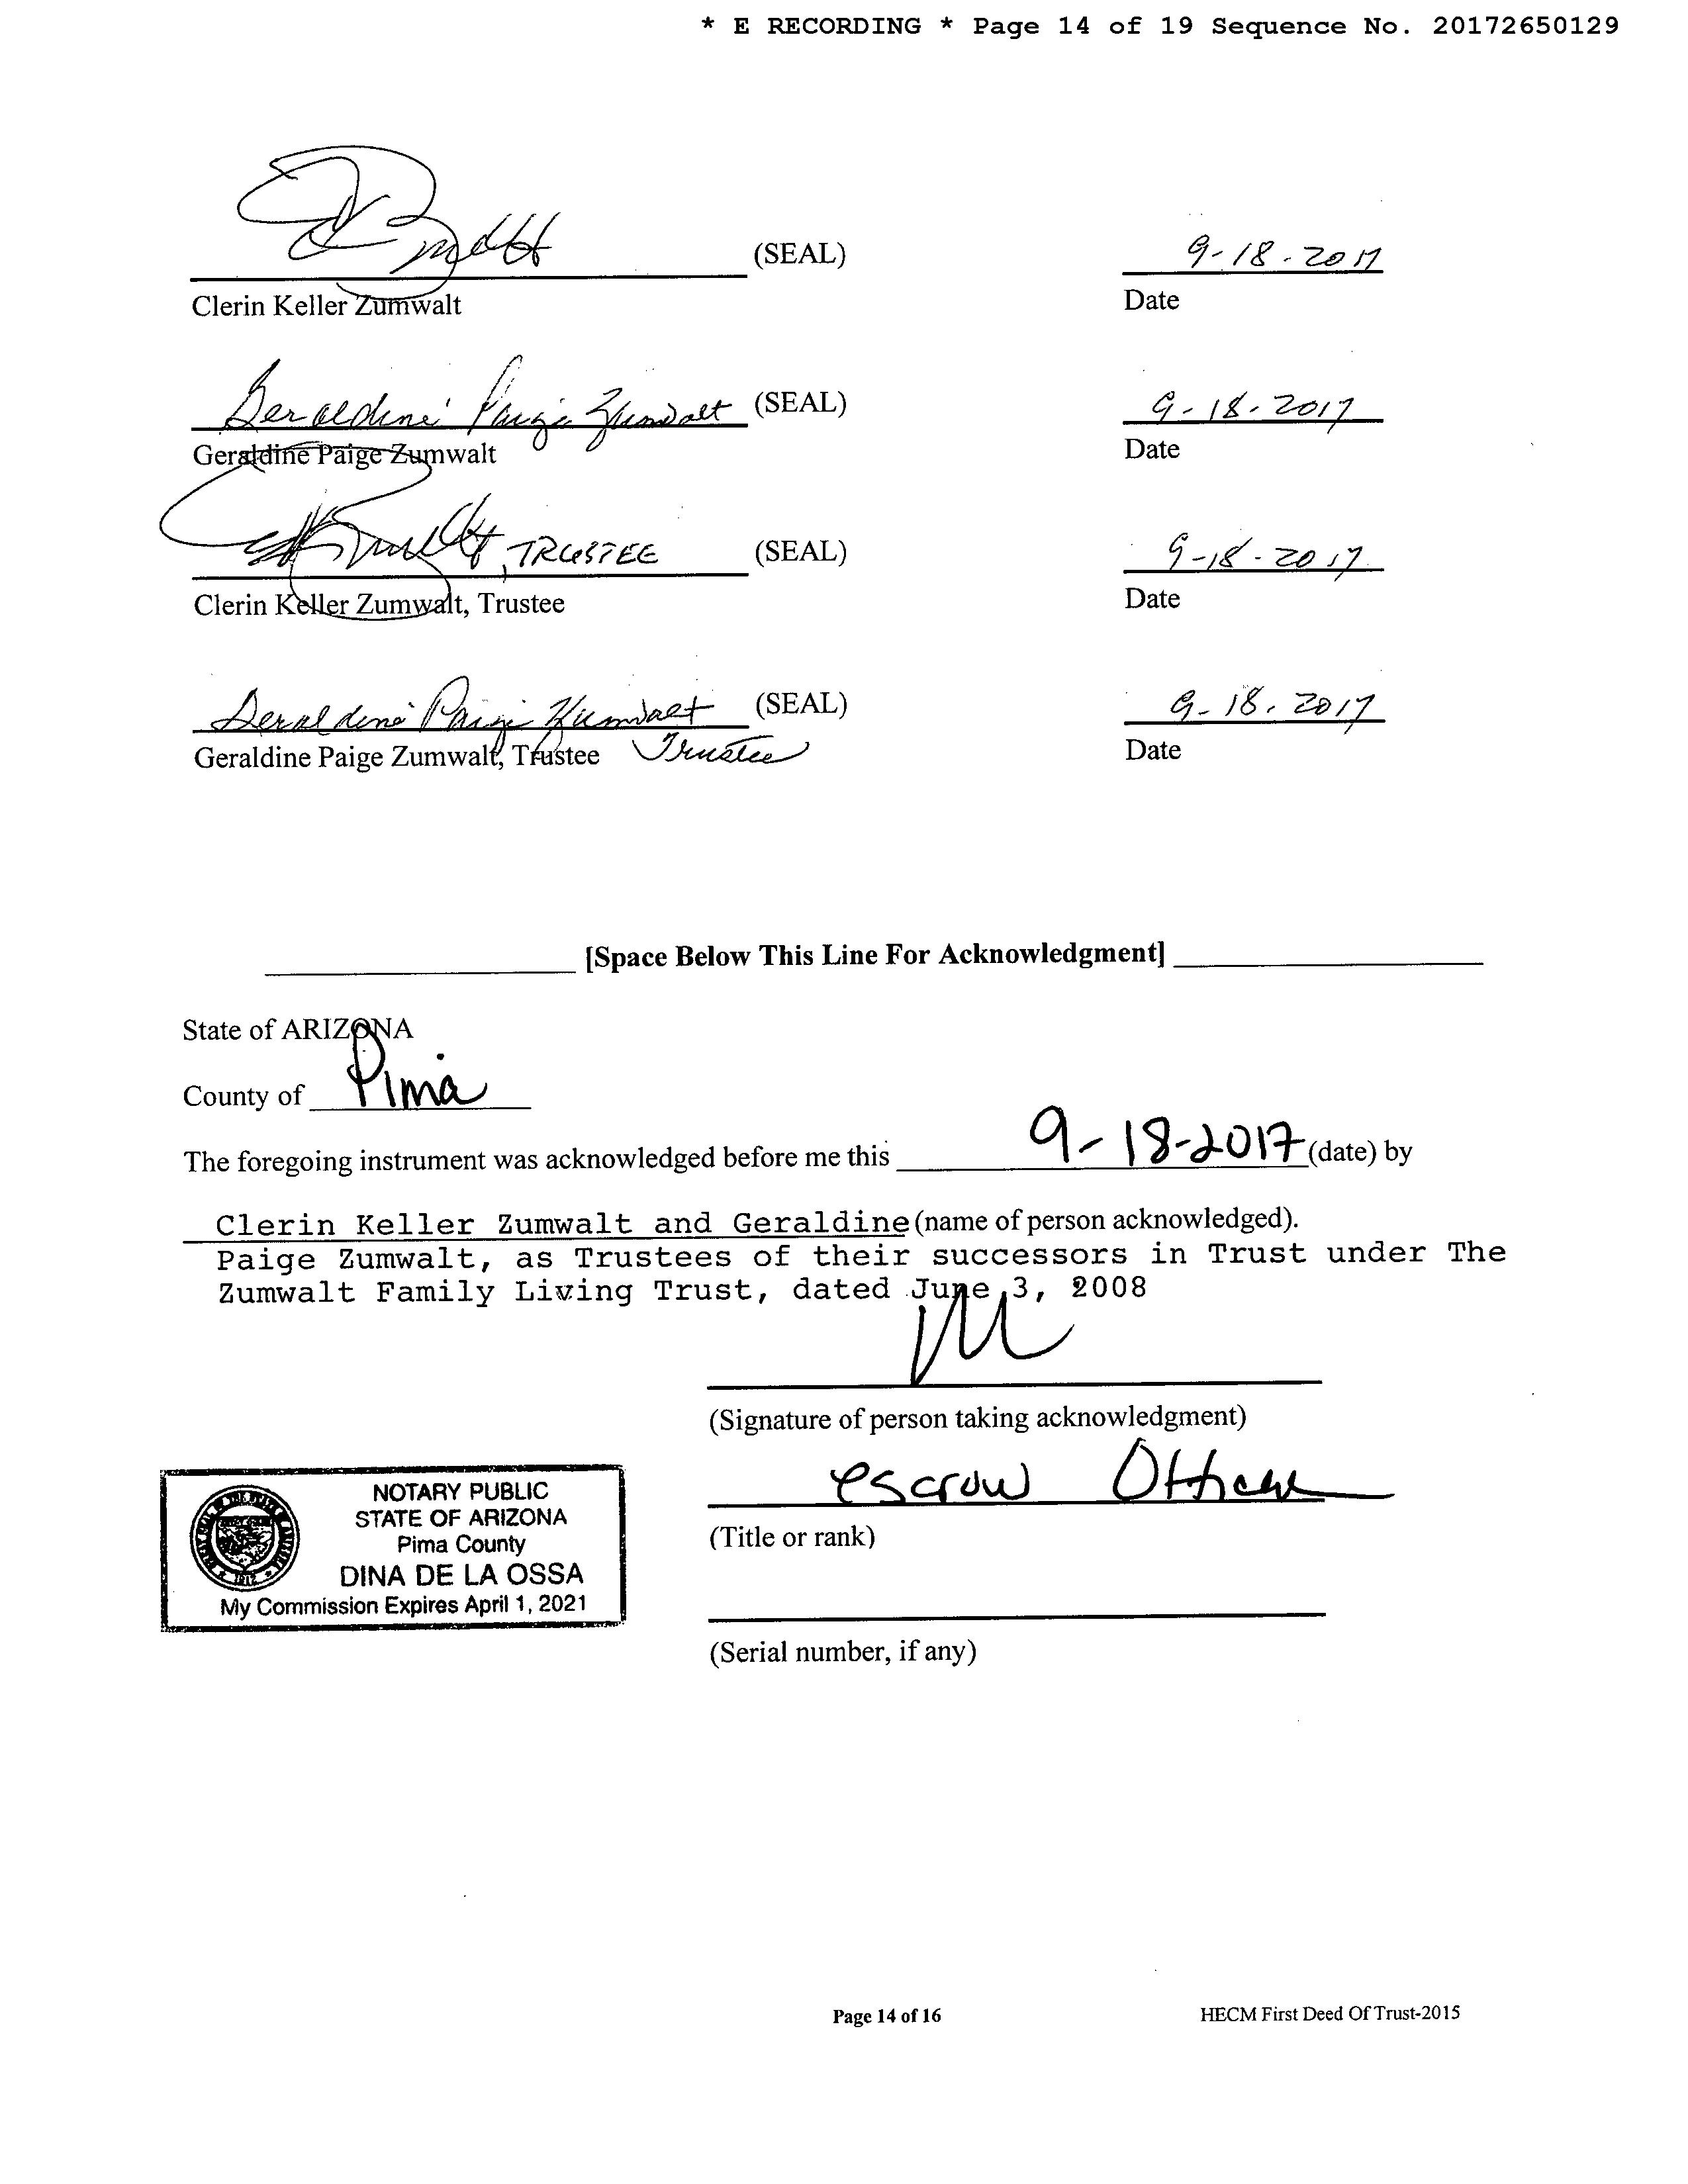 * E RECORDING * Page 14 of 19 Sequence No. 20172650129
(SEAL) 9-18-2017
Clerin Keller Zumwalt Date
Geraldine Paige Zumwalt (SEAL) 9-18-2017
Geraldine Paige Zumwalt Date
, TRUSTEE (SEAL) 9-18-2017
Clerin Keller Zumwalt, Trustee Date
Geraldine Paige Zumwalt (SEAL) 9-18-2017
Geraldine Paige Zumwalt, Trustee Trustee Date
[Space Below This Line For Acknowledgment]
State of ARIZONA
County of Pima
The foregoing instrument was acknowledged before me this 9-18-2017 (date) by
Clerin Keller Zumwalt and Geraldine (name of person acknowledged).
Paige Zumwalt, as Trustees of their successors in Trust under The
Zumwalt Family Living Trust, dated June 3, 2008
(Signature of person taking acknowledgment)
escrow Officer
(Title or rank)
NOTARY PUBLIC
STATE OF ARIZONA
Pima County
DINA DE LA OSSA
My Commission Expires April 1, 2021
(Serial number, if any)
Page 14 of 16 HECM First Deed Of Trust-2015